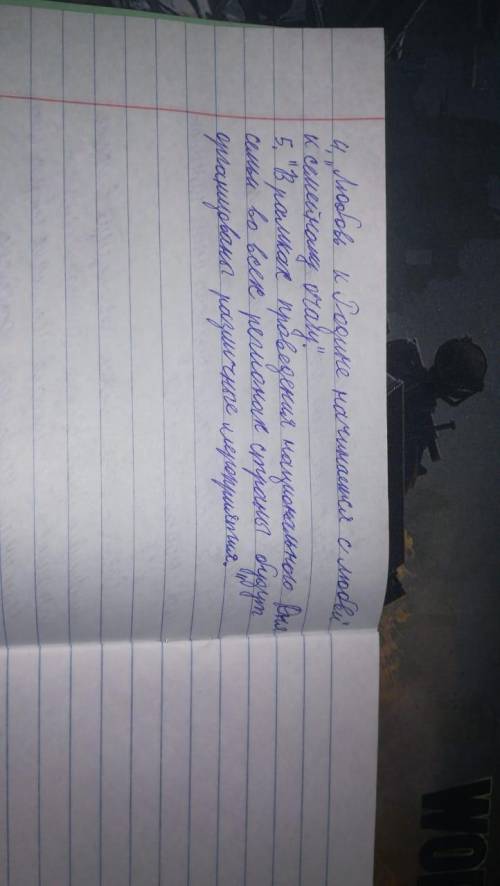 4. "Любовь к Родине начинается с любви
к семейному очагу."
5. "В рамках проведения национального дня
семьи во всех регионах страны будут
организованы различные мероприятия."
WO